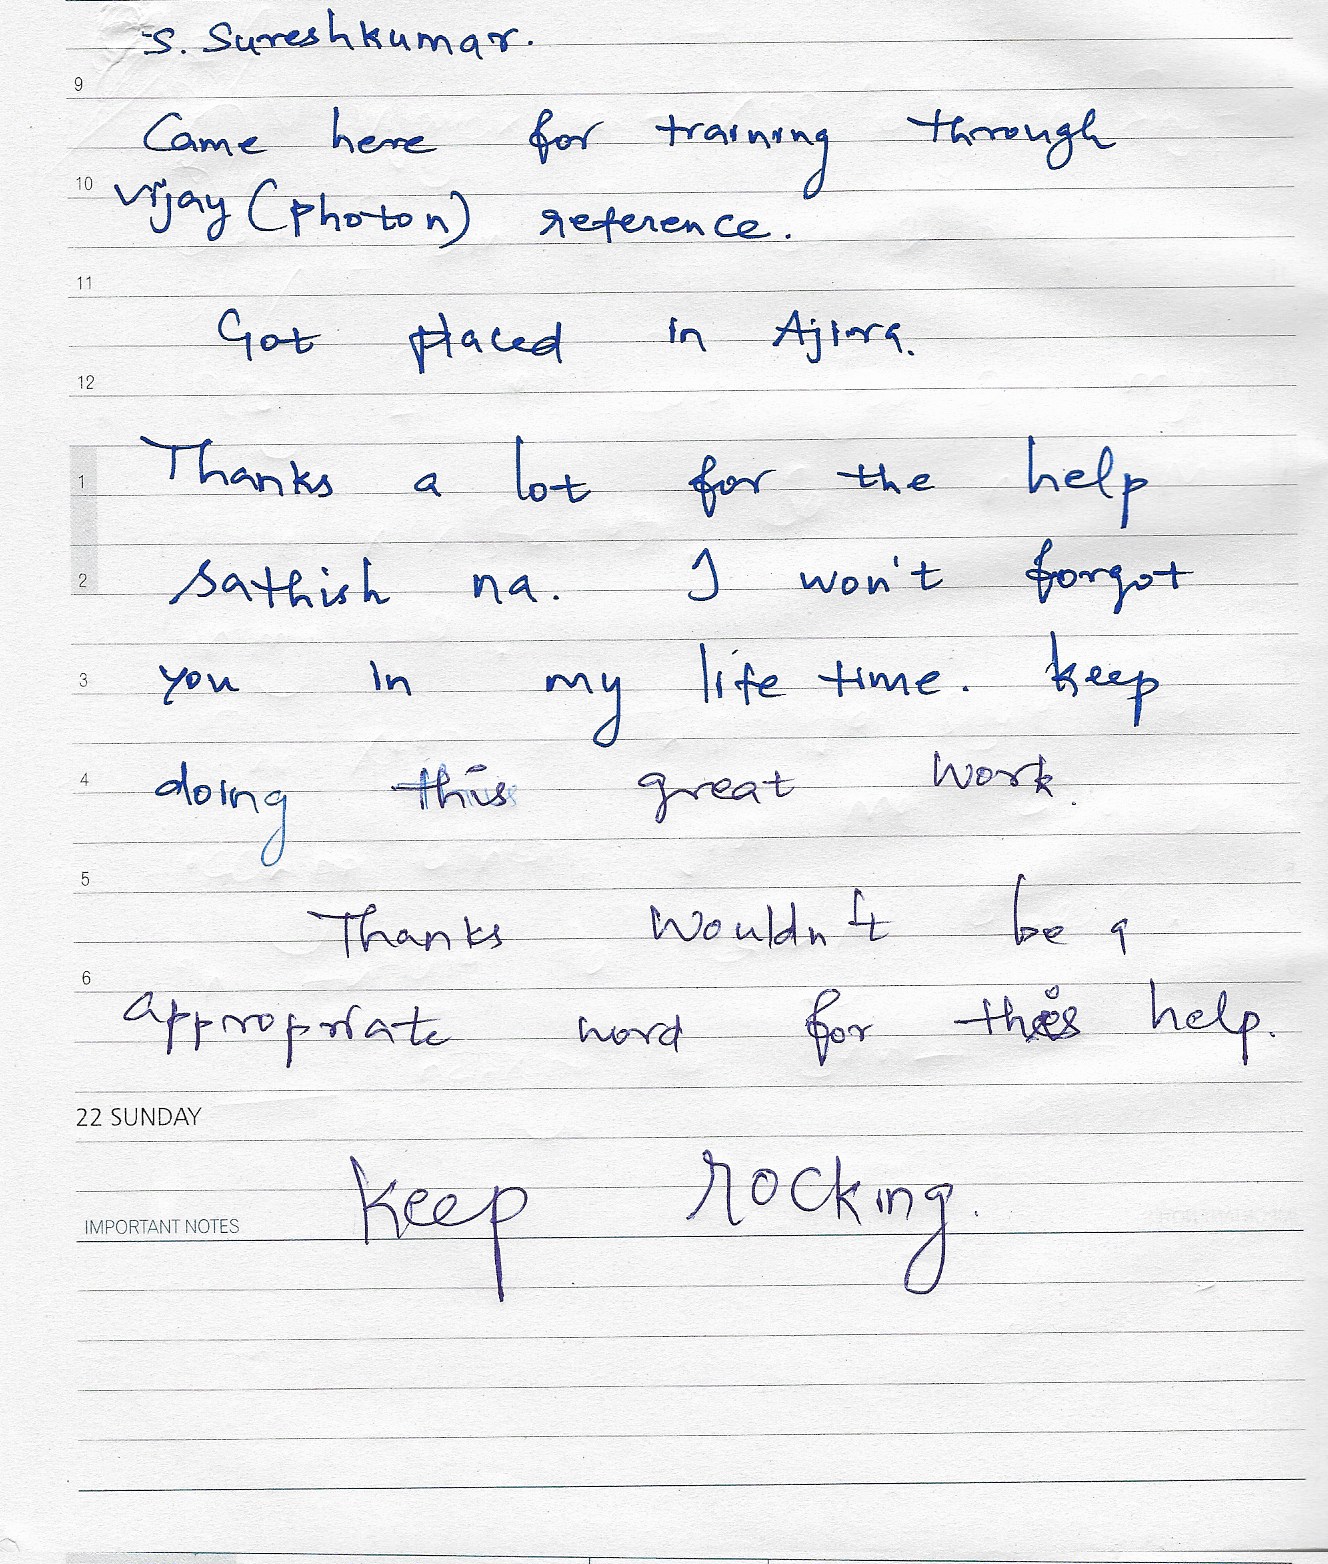 S. Sureshkumar.
9
Came here for training through
10
Vijay (photon) reference.
11
Got placed in Ajira.
12
1
Thanks a lot for the help
2
sathish na. I won't forgot
3
you in my life time. keep
4
doing this great work.
5
Thanks wouldn't be a
6
appropriate word for this help.
22 SUNDAY
keep rocking.
IMPORTANT NOTES